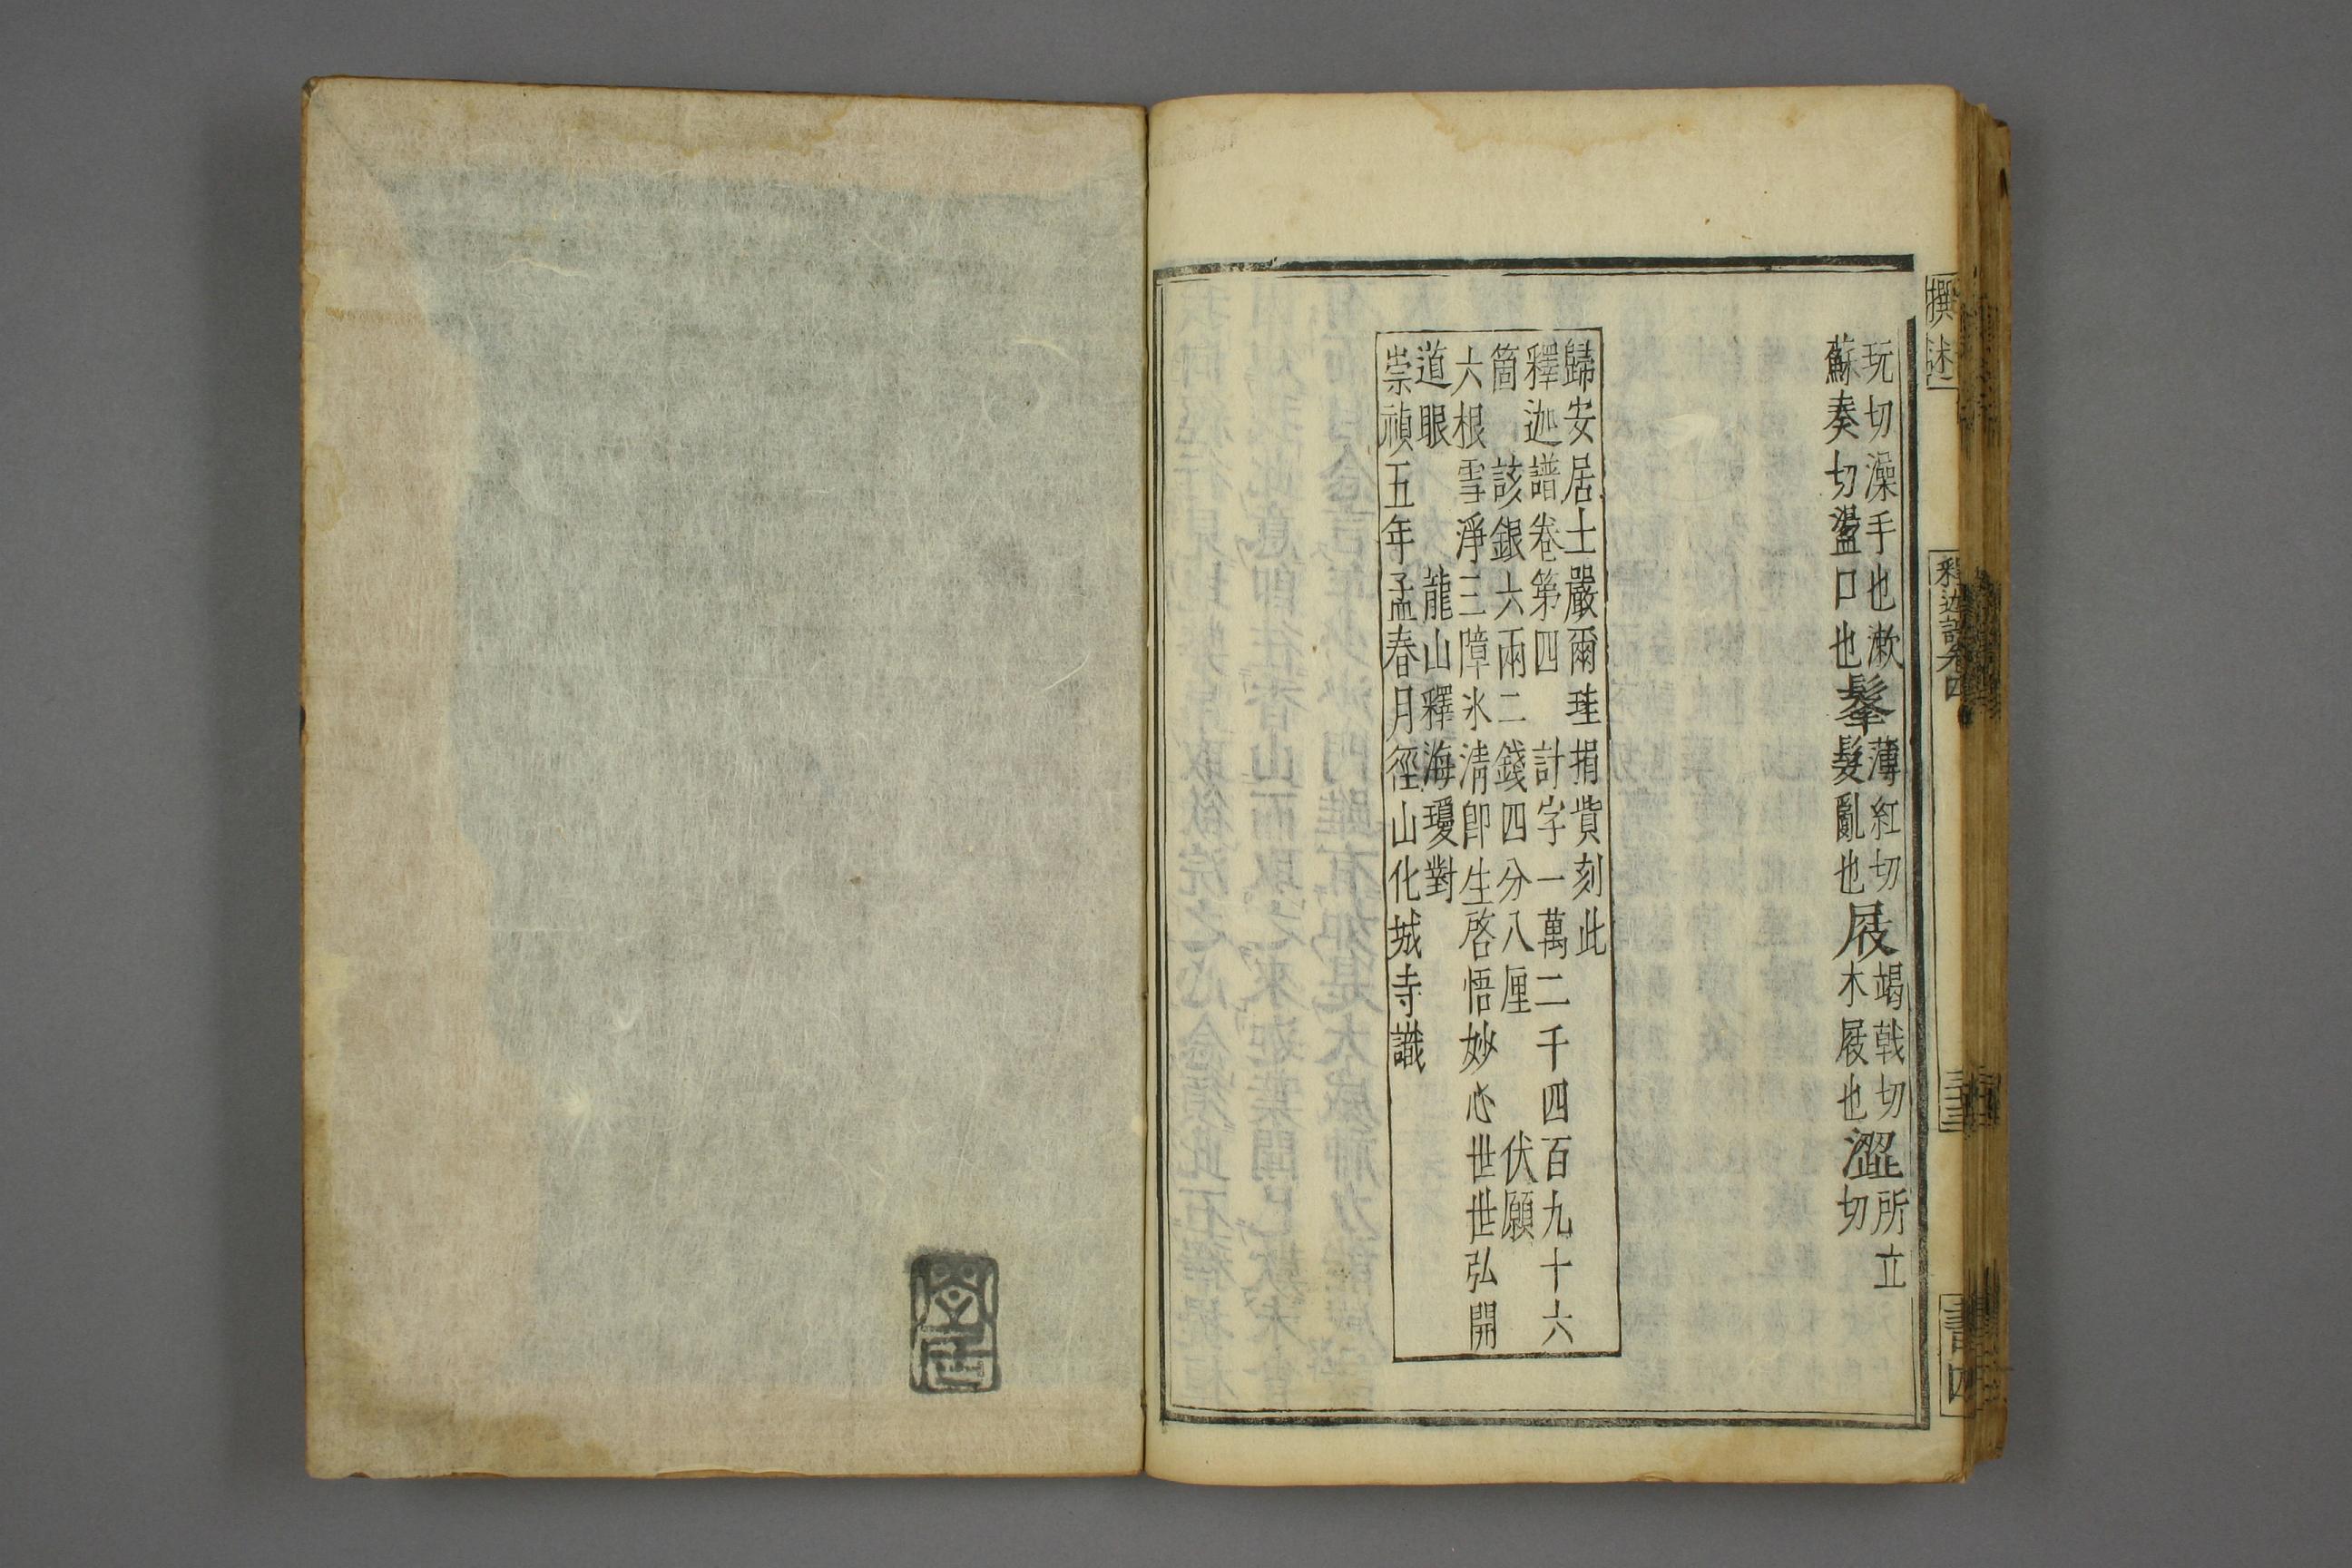 撰述
釋迦譜卷四
三十三
書四
玩切澡手也漱
蘇奏切盪口也
鬔
薄紅切
髮亂也
屐
竭戟切
木屐也
澀
所立
切
歸安居士嚴爾珪捐貲刻此
釋迦譜卷第四　計字一萬二千四百九十六
箇　該銀六兩二錢四分八厘　伏願
六根雪淨三障氷清卽生啓悟妙心世世弘開
道眼　龍山釋海瓊對
崇禎五年孟春月徑山化城寺識